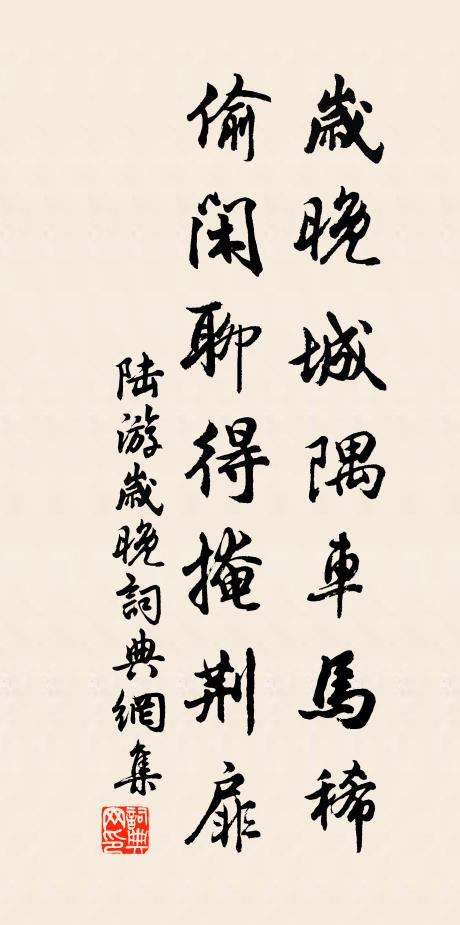 歲晚城隅車馬稀
偷閑聊得掩荆扉
陸游歲晚詞典網集
詞典网印